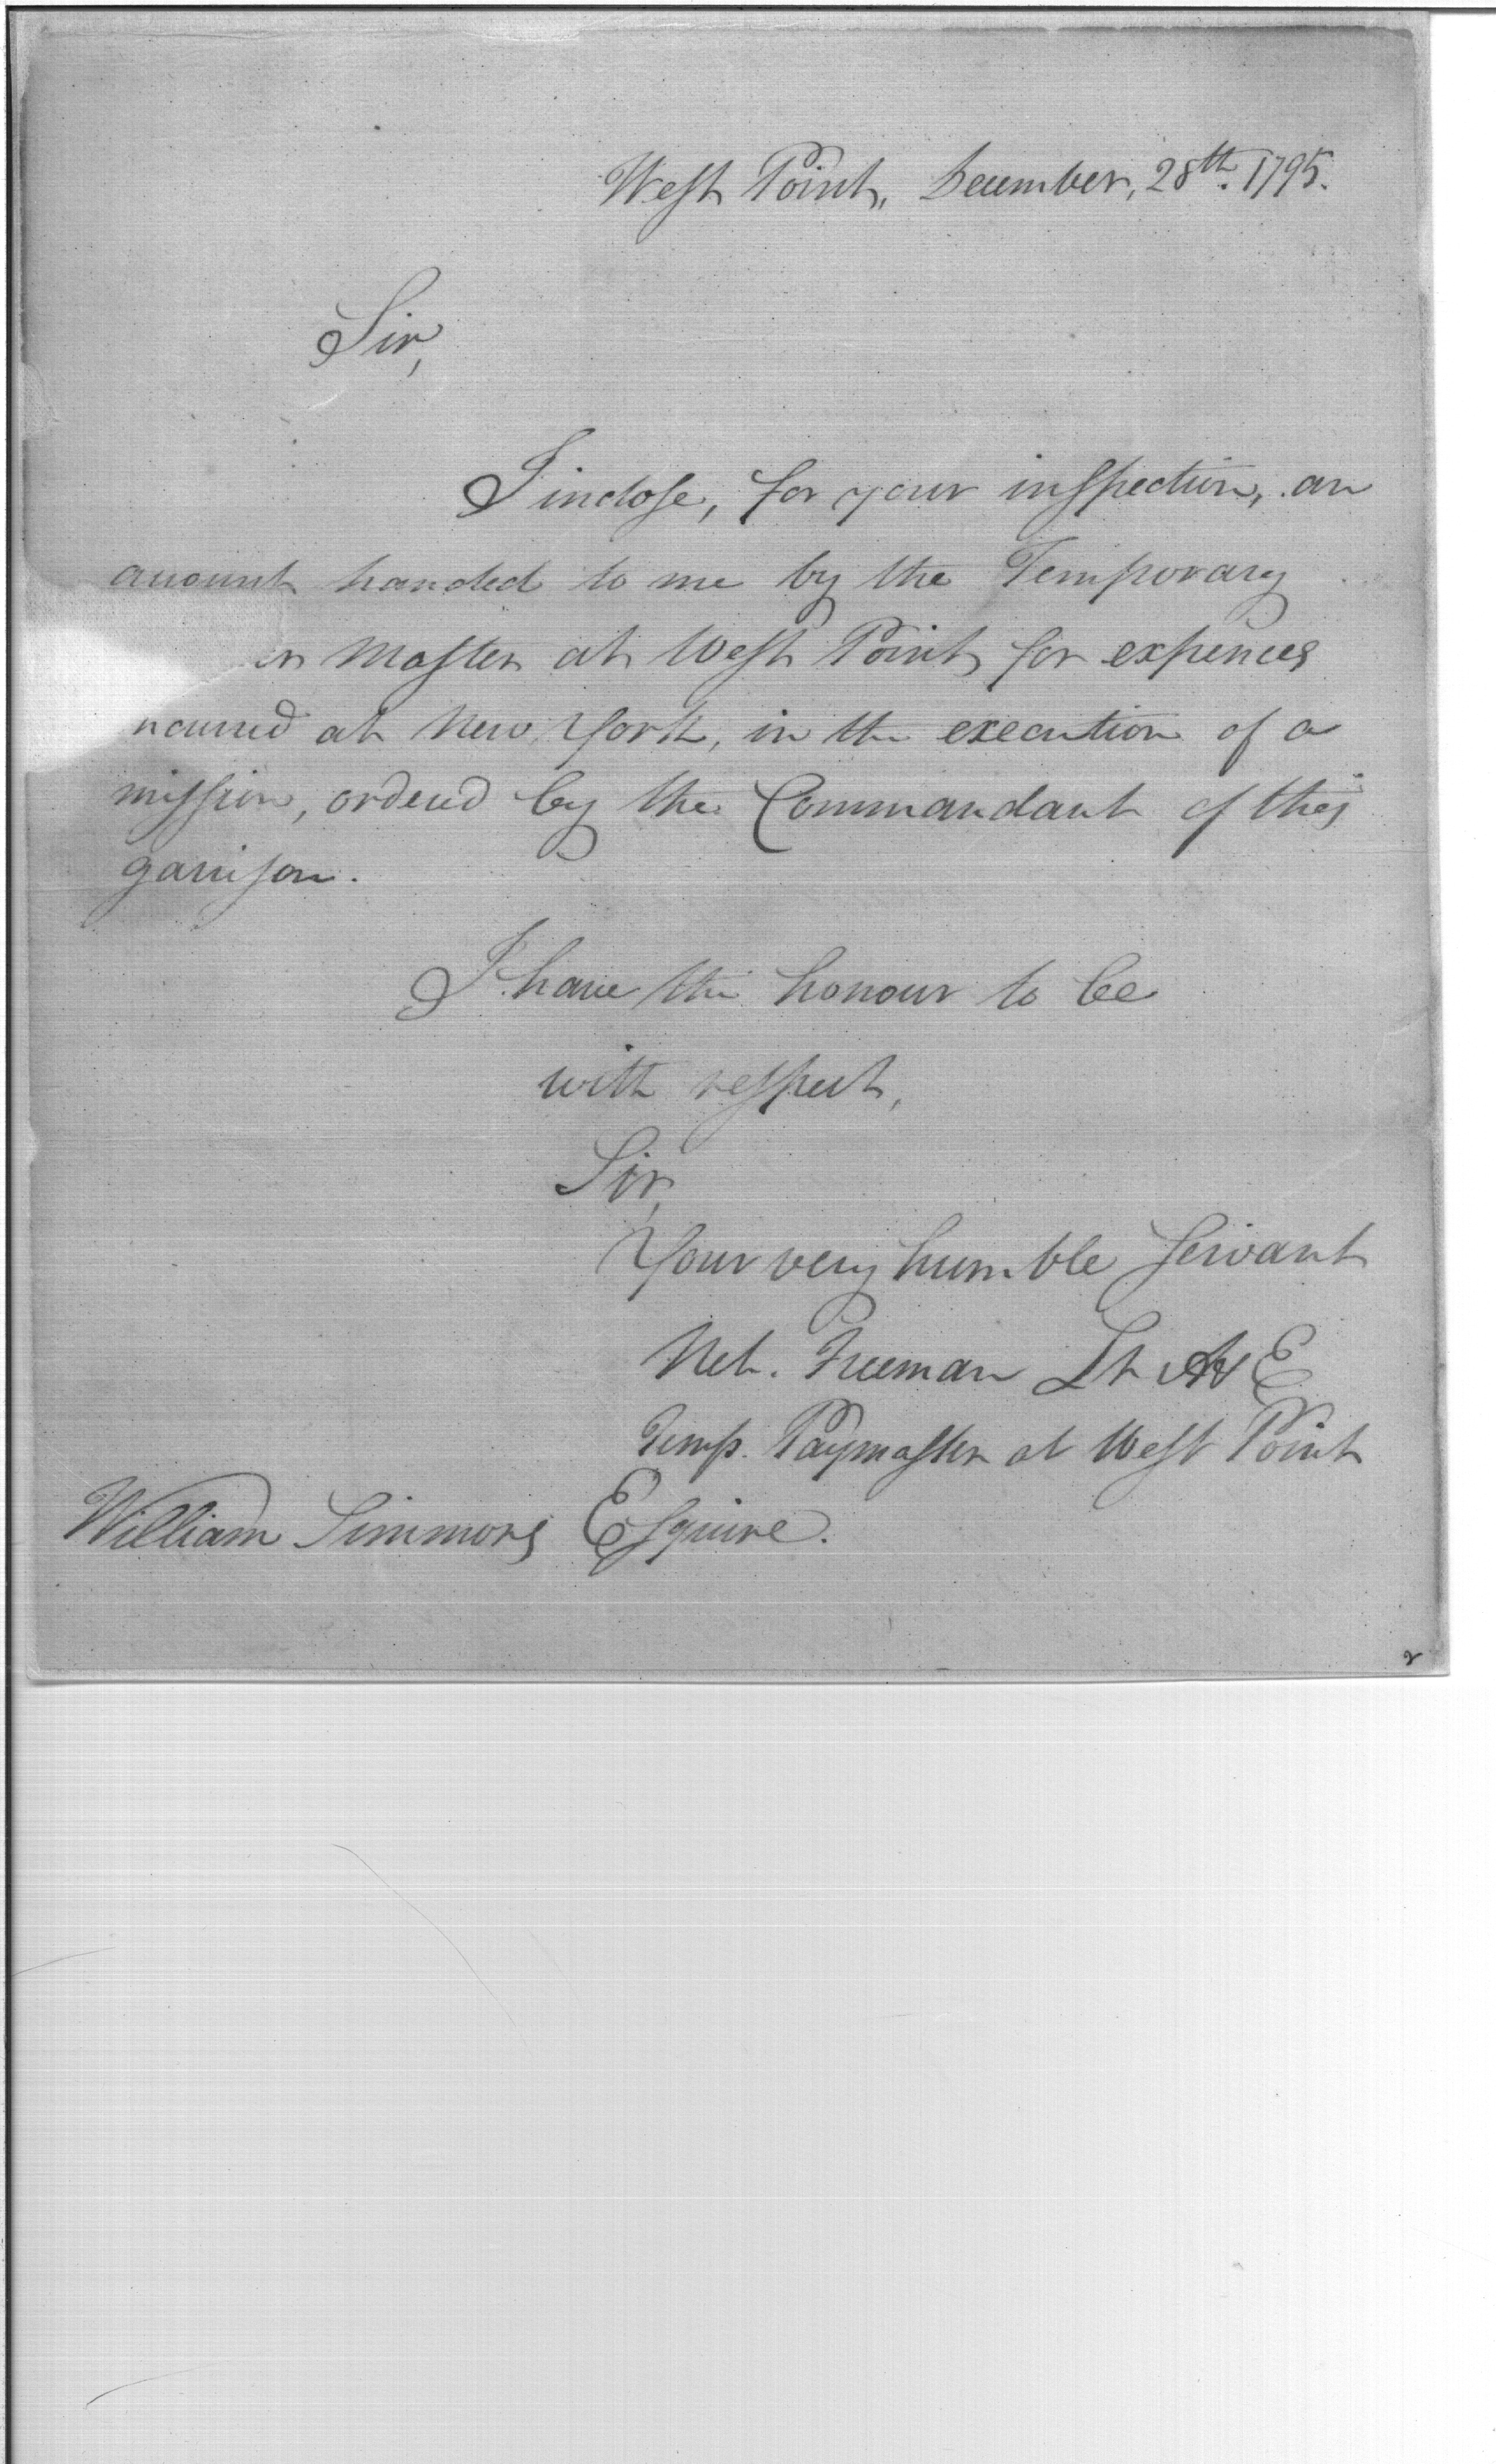 West Point, December, 28th. 1795.
Sir,
I inclose, for your inspection, an
account handed to me by the Temporary
er Master at West Point for expences
ncurred at New York, in the execution of a
mission, ordered by the Commandant of this
garrison.
I have the honour to be
with respect,
Sir,
Your very humble servant
Neh. Freeman Lt A&E
Temp. Paymaster at West Point
William Simmons Esquire.
2